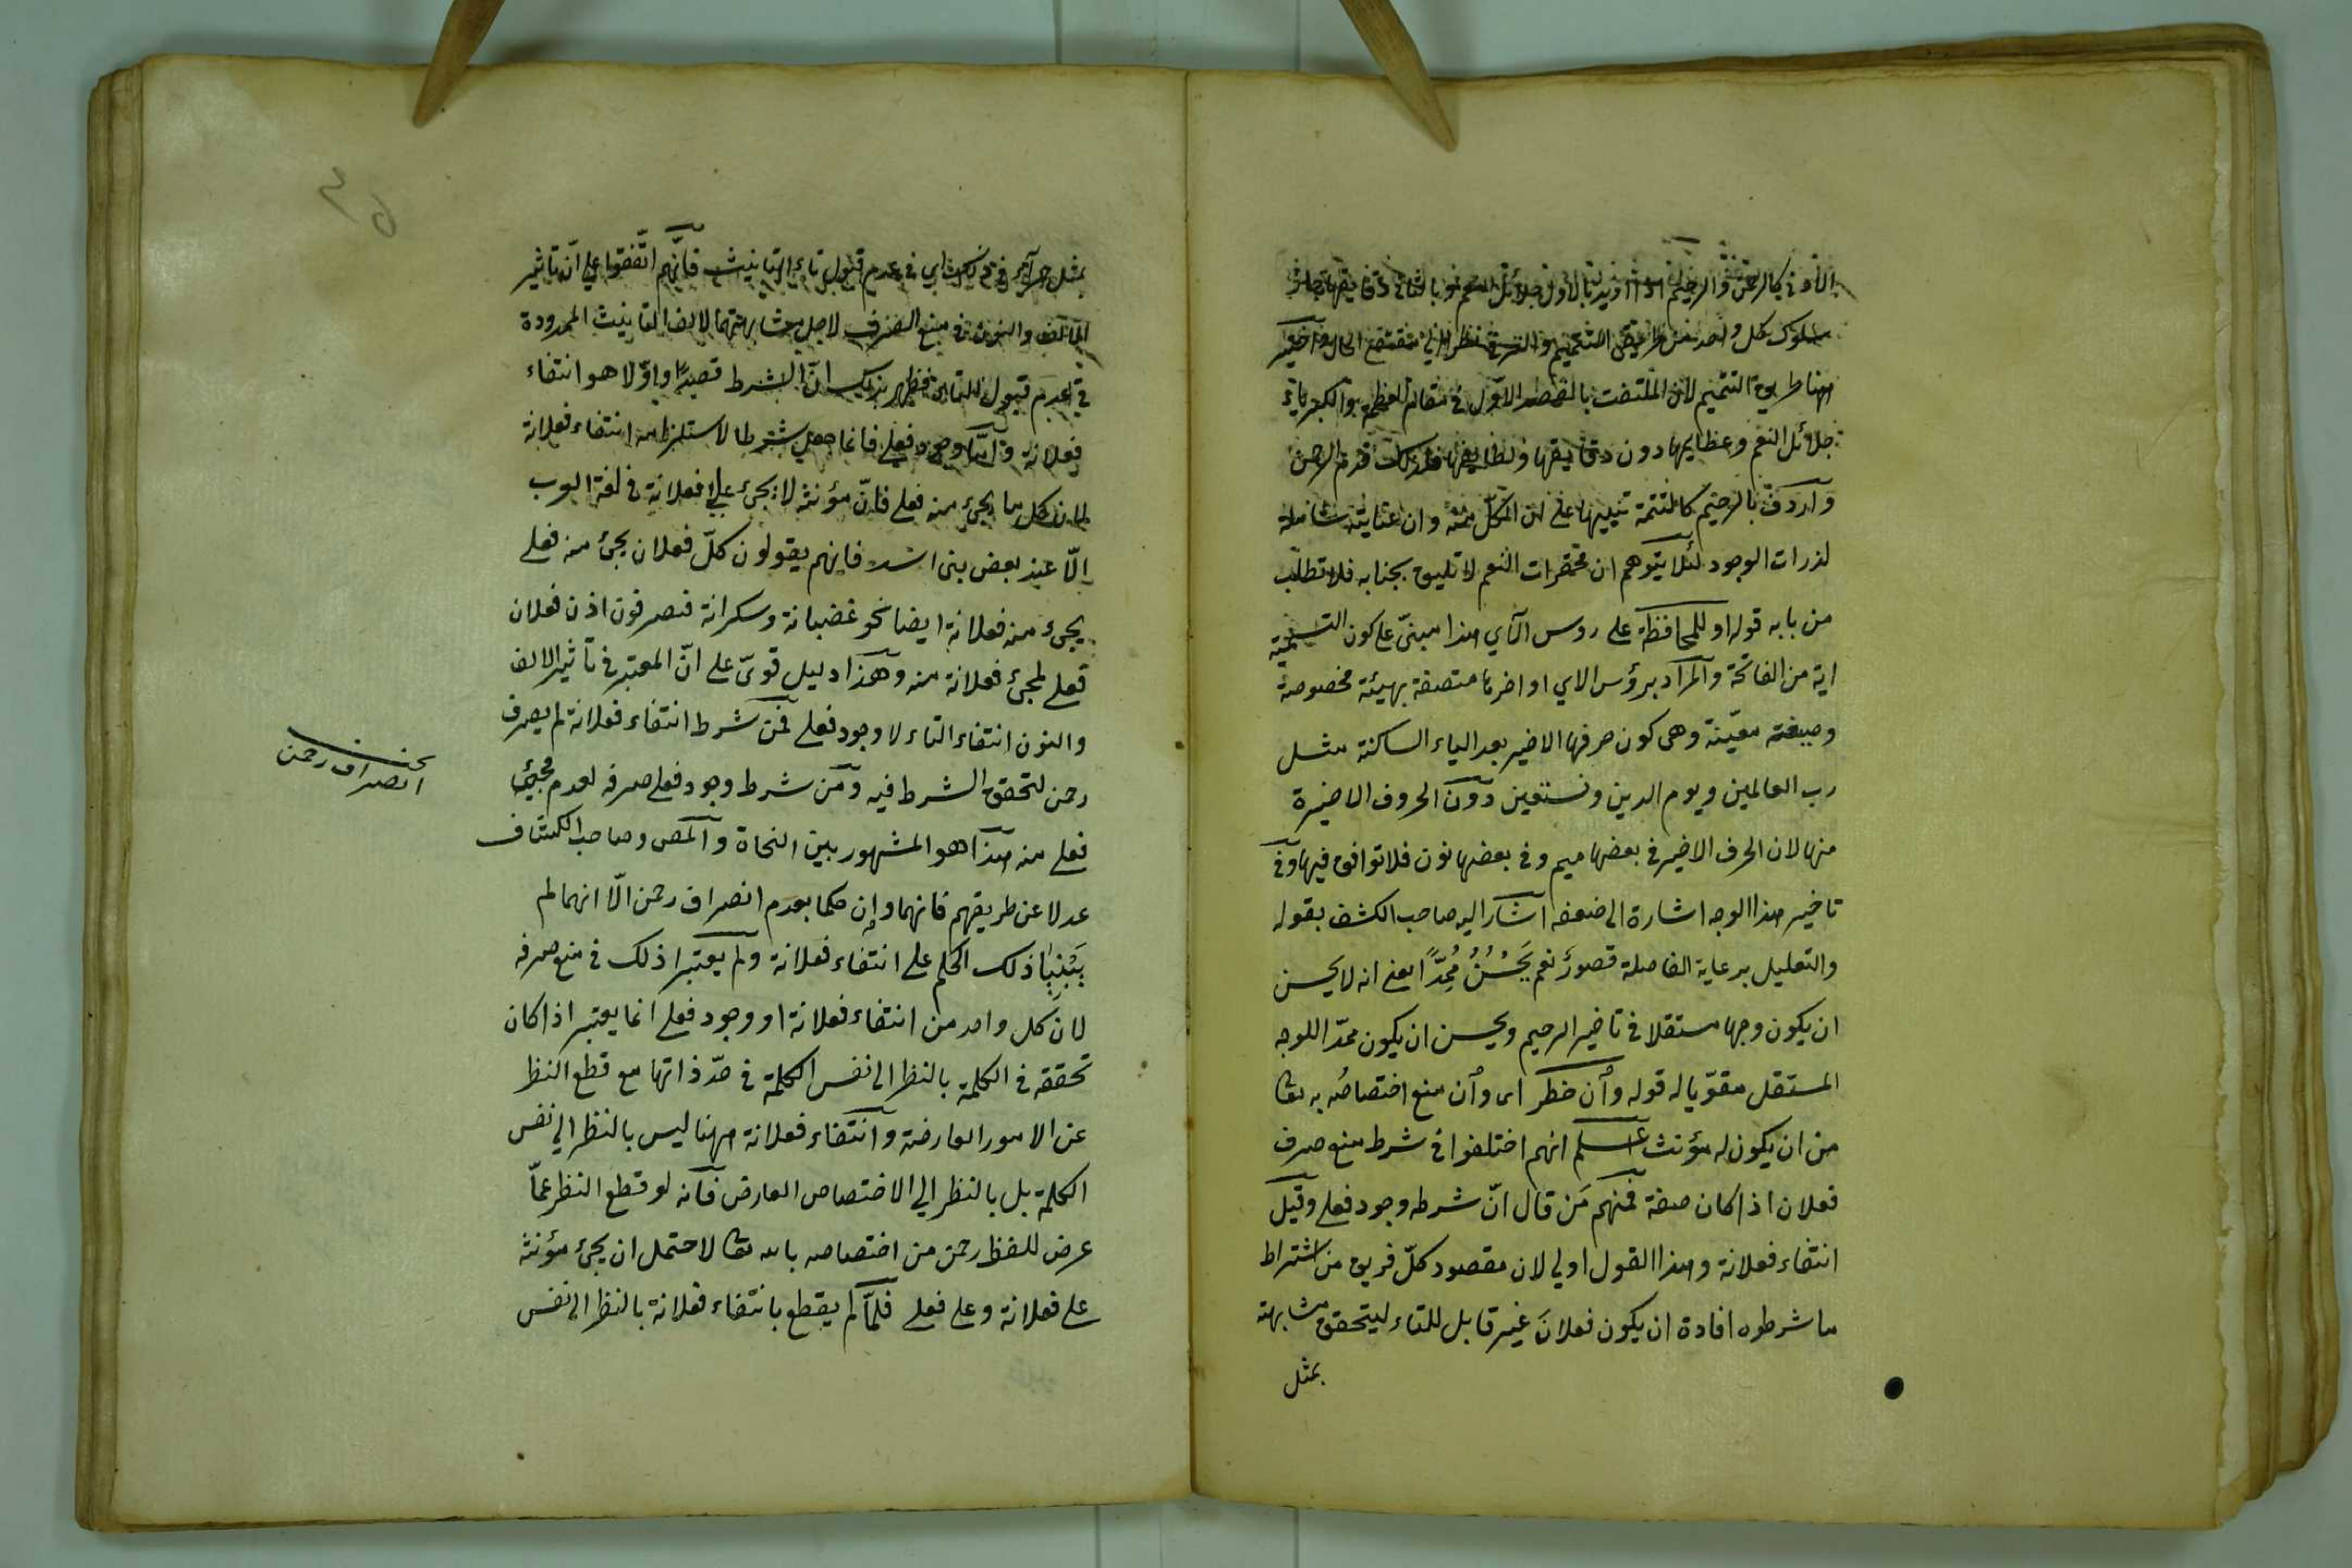 سلوك كل واحد من طريقى التتميم والترقى نظرا الى مقتضى الحال واختير
ههنا طريق التتميم لان الملتفت بالقصد الاول في مقام العظمة والكبرياء
جلائل النعم وعظايمها دون دقايقها ولطايفها فلذلك قدم الرحمن
وأردف بالرحيم كالتتمة تنبيها على ان الكلّ منه وان عنايته شاملة
لذرات الوجود لئلا يتوهم ان محقرات النعم لا تليق بجنابه فلا تطلب
من بابه قوله او للمحافظة على روس الآي هذا مبنىّ على كون التسمية
اية من الفاتحة والمراد برؤس الاي اواخرها متصفة بهيئة مخصوصة
وصيغة معيّنة وهى كون حرفها الاخير بعد الياء الساكنة مثل
رب العالمين ويوم الدين ونستعين دون الحروف الاخيرة
منها لان الحرف الاخير في بعضها ميم وفي بعضها نون فلا توافق فيها وفي
تاخير هذا الوجه اشارة الى ضعفه اشار اليه صاحب الكشف بقوله
والتعليل برعاية الفاصلة قصور نعم يَحْسُنُ مُمِدًّا يعنى انه لا يحسن
ان يكون وجها مستقلا في تاخير الرحيم ويحسن ان يكون ممدّا للوجه
المستقل مقوّيا له قوله وأن حظر اى وأن منع اختصاصُه به تعا
من ان يكون له مؤنث اعلم انهم اختلفوا في شرط منع صرف
فعلان اذا كان صفة فمنهم مَن قال انّ شرطه وجود فعلى وقيل
انتفاء فعلانة وهذا القول اولى لان مقصود كلّ فريق من اشتراط
ما شرطوه افادة ان يكون فعلانَ غير قابل للتاء ليتحقق مشابهته
بمثل
بمثل حمراء في ذلك اى في عدم قبول تاء التانيث فانّهم اتّفقوا على انّ تاثير
الالف والنون في منع الصرف لاجل مشابهتهما لالف التانيث الممدودة
في عدم قبول التاء فظهر بذلك انّ الشرط قصدًا واوّلا هو انتفاء
فعلانة وامّا وجود فعلى فانما جعل شرطا لاستلزامه انتفاء فعلانة
لان كل ما يجئ منه فعلى فانّ مؤنثه لا يجئ على فعلانة في لغة العرب
الّا عند بعض بنى اسد فانهم يقولون كلّ فعلان يجئ منه فعلى
يجئ منه فعلانة ايضا نحو غضبانة وسكرانة فنصرفون اذن فعلان
فعلى لمجئ فعلانة منه وهذا دليل قوىّ على انّ المعتبر في تاثير الالف
والنون انتفاء التاء لا وجود فعلى فمن شرط انتفاء فعلانة لم يصرف
رحمن لتحقق الشرط فيه ومن شرط وجود فعلى صرفه لعدم مجئ
فعلى منه هذا هو المشهور بين النحاة والمص وصاحب الكشاف
عدلا عن طريقهم فانهما وإن حكما بعدم انصراف رحمن الّا انهما لم
يَبْنِيَا ذلك الحكم على انتفاء فعلانة ولم يعتبرا ذلك في منع صرفه
لانّ كل واحد من انتفاء فعلانة او وجود فعلى انما يعتبر اذا كان
تحققه في الكلمة بالنظر الى نفس الكلمة في حدّ ذاتها مع قطع النظر
عن الامور العارضة وانتفاء فعلانة ههنا ليس بالنظر الى نفس
الكلمة بل بالنظر الى الاختصاص العارض فانه لو قطع النظر عمّا
عرض للفظ رحمن من اختصاصه بالله تعا لاحتمل ان يجئ مؤنثه
على فعلانة وعلى فعلى فلمّا لم يقطع بانتفاء فعلانة بالنظر الى نفس
انصراف رحمن